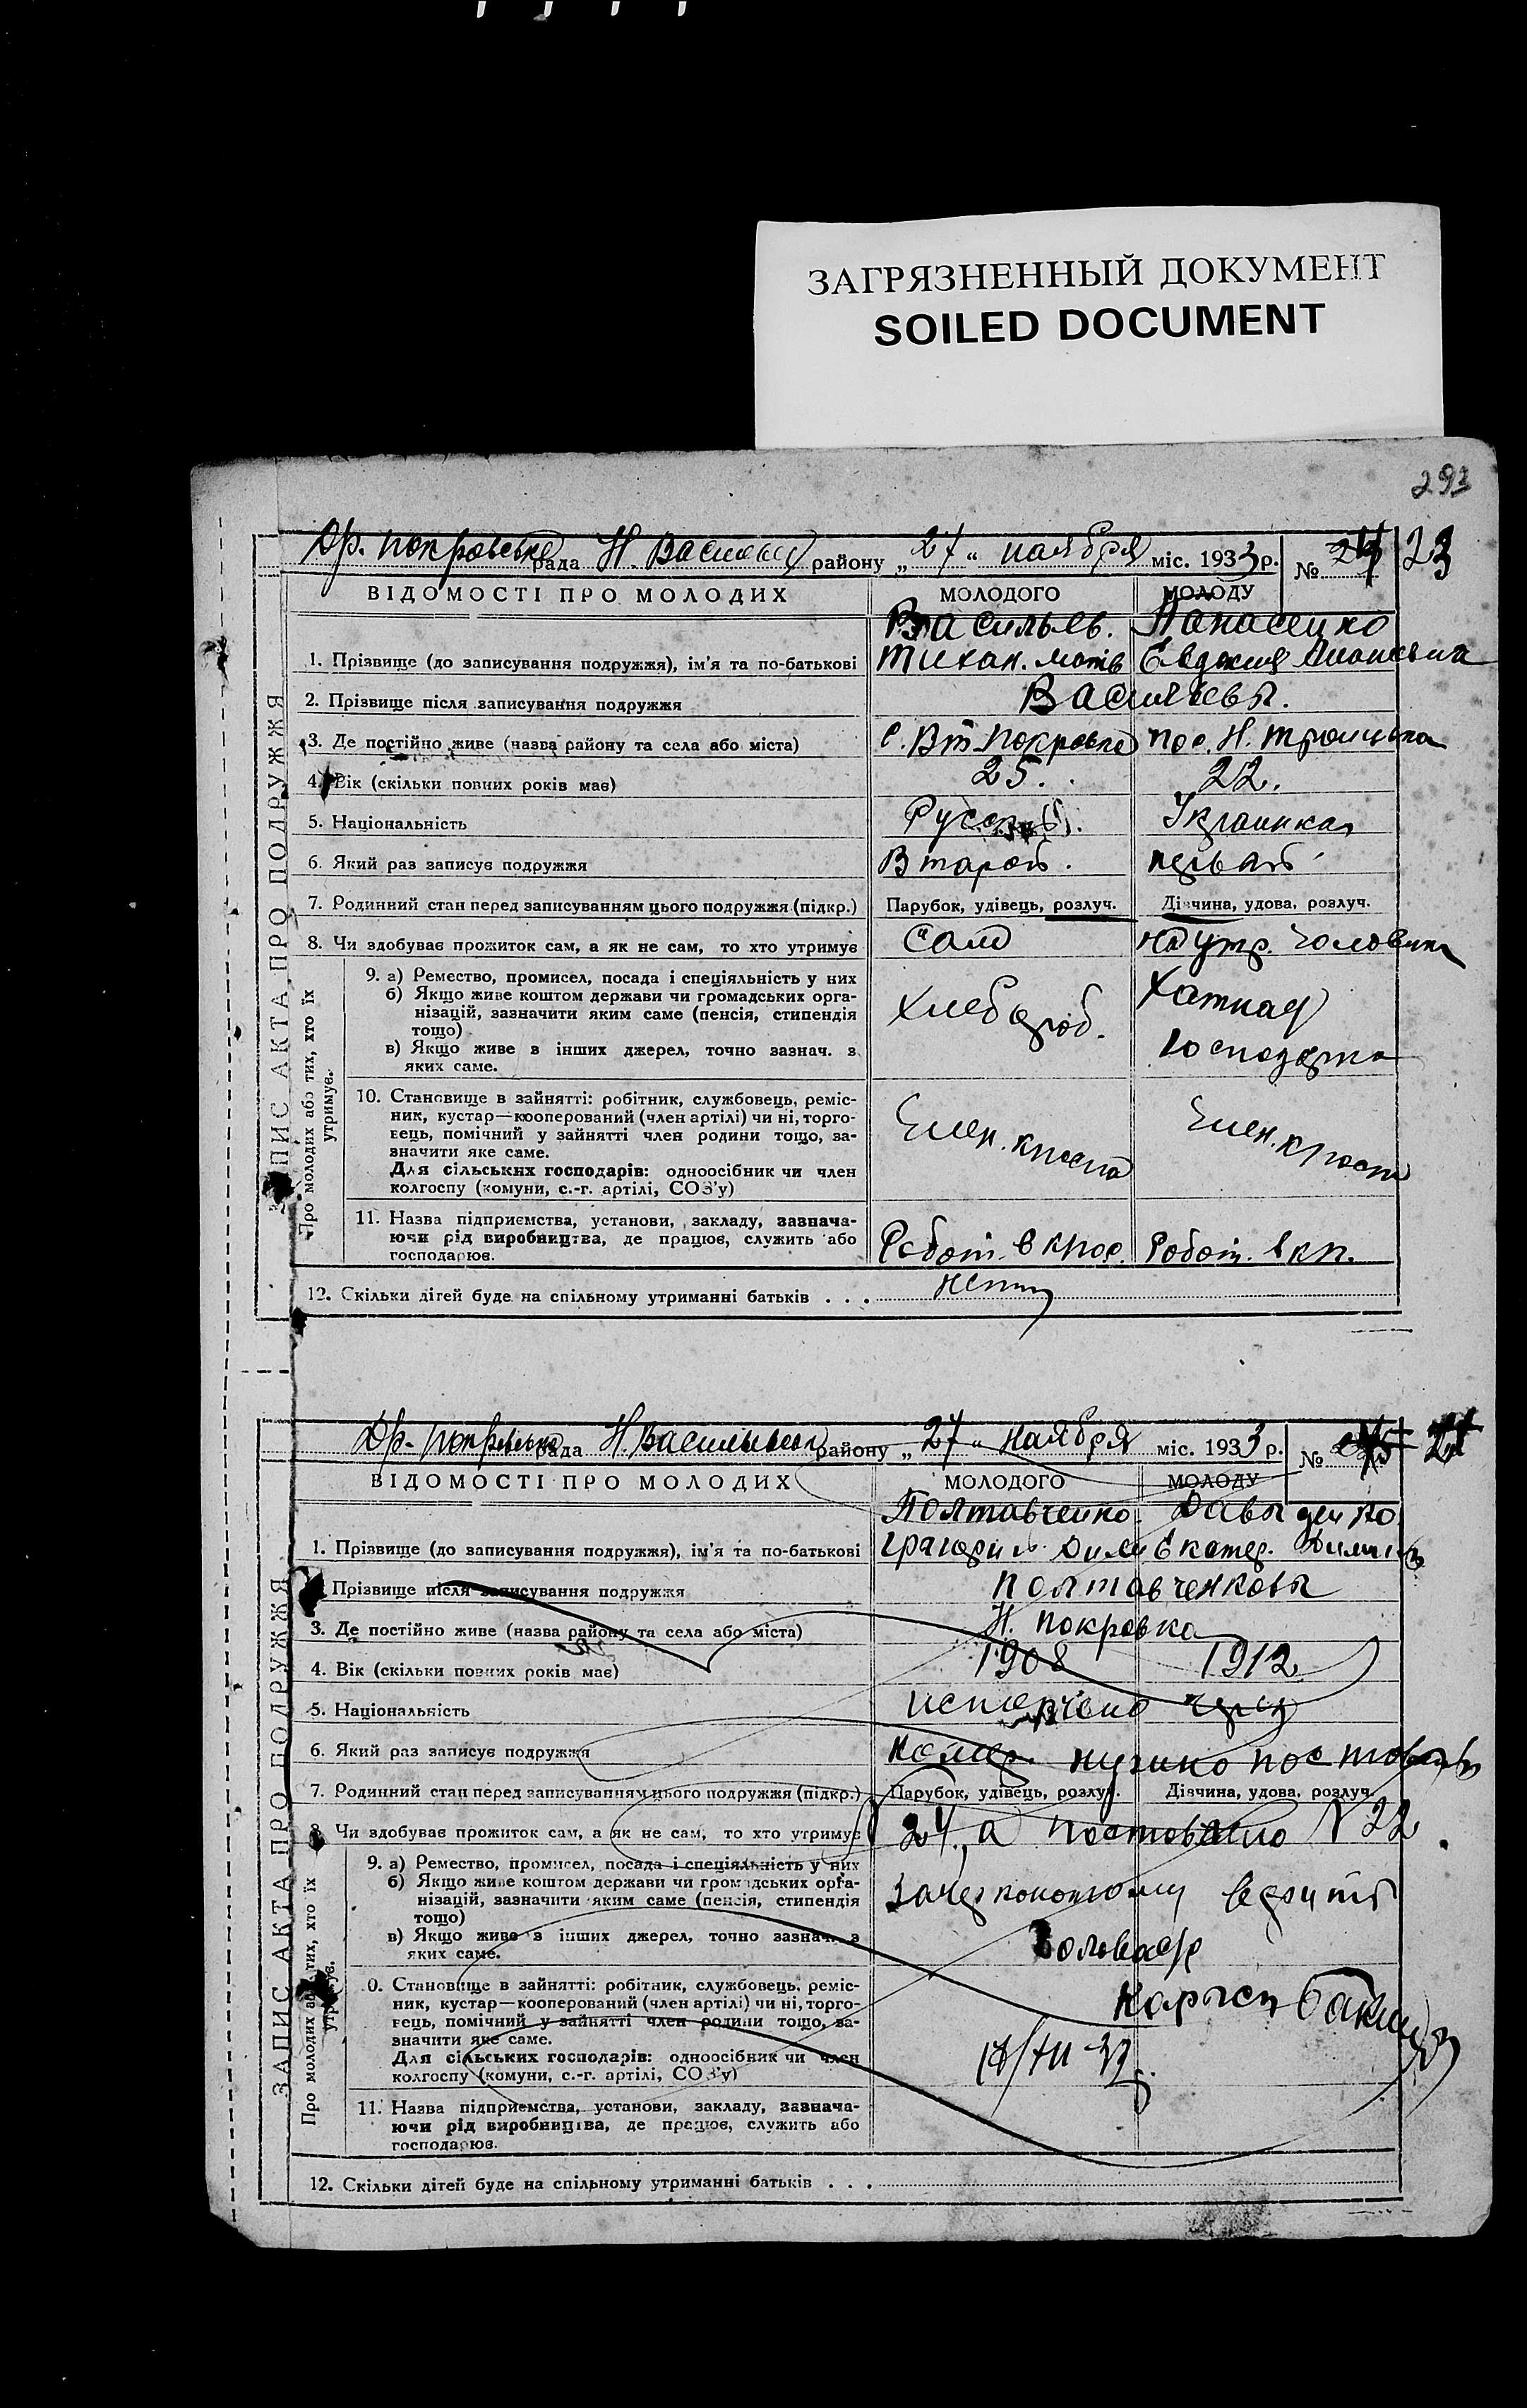 ЗАГРЯЗНЕННЫЙ ДОКУМЕНТ
SOILED DOCUMENT
293
рада Н. Василь району „27“ ноября міс. 1933 р. № 24 23
ВІДОМОСТІ ПРО МОЛОДИХ МОЛОДОГО МОЛОДУ
Васильев. Панасенко
1. Прізвище (до записування подружжя), ім'я та по-батькові Тихон. Евдокия
2. Прізвище після записування подружжя Васильевы.
3. Де постійно живе (назва району та села або міста) с. Вт. Покровка пос. Н. Троицька
4. Вік (скільки повних років має) 25. 22.
5. Національність Русск Украинка
6. Який раз записує подружжя Второй. первый
7. Родинний стан перед записуванням цього подружжя (підкр.) Парубок, удівець, розлуч. Дівчина, удова, розлуч.
8. Чи здобуває прожиток сам, а як не сам, то хто утримує Сам на утр. чоловика
9. а) Ремество, промисел, посада і спеціяльність у них
б) Якщо живе коштом держави чи громадських орга-
нізацій, зазначити яким саме (пенсія, стипендія
тощо)
в) Якщо живе в інших джерел, точно зазнач. з
яких саме.
Хлебороб. Хатная
10. Становище в зайнятті: робітник, службовець, реміс-
ник, кустар—кооперований (член артілі) чи ні, торго-
вець, помічний у зайнятті член родини тощо, за-
значити яке саме.
Для сільських господарів: одноосібник чи член
колгоспу (комуни, с.-г. артілі, СОЗ'у)
Член. Член.
11. Назва підприємства, установи, закладу, зазнача-
ючи рід виробництва, де працює, служить або
господарює.
Робот. в Робот. в
12. Скільки дітей буде на спільному утриманні батьків . . . нет
ЗАПИС АКТА ПРО ПОДРУЖЖЯ
Про молодих або тих, хто їх утримує.
рада Н. Васильевск району „27“ ноября міс. 1933 р. №
ВІДОМОСТІ ПРО МОЛОДИХ МОЛОДОГО МОЛОДУ
Полтавченко Давыденко
1. Прізвище (до записування подружжя), ім'я та по-батькові Григорий Екатер.
Прізвище після записування подружжя Полтавченковы
3. Де постійно живе (назва району та села або міста) Н. Покровка
4. Вік (скільки повних років має) 1908 1912
5. Національність
6. Який раз записує подружжя номер. нужно
7. Родинний стан перед записуванням цього подружжя (підкр.) Парубок, удівець, розлуч. Дівчина, удова, розлуч.
8. Чи здобуває прожиток сам, а як не сам, то хто утримує 24, а поставлено N 22
9. а) Ремество, промисел, посада і спеціяльність у них
б) Якщо живе коштом держави чи громадських орга-
нізацій, зазначити яким саме (пенсія, стипендія
тощо)
в) Якщо живе в інших джерел, точно зазнач. з
яких саме.
0. Становище в зайнятті: робітник, службовець, реміс-
ник, кустар—кооперований (член артілі) чи ні, торго-
вець, помічний у зайнятті член родини тощо, за-
значити яке саме.
Для сільських господарів: одноосібник чи член
колгоспу (комуни, с.-г. артілі, СОЗ'у)
11. Назва підприємства, установи, закладу, зазнача-
ючи рід виробництва, де працює, служить або
господарює.
12. Скільки дітей буде на спільному утриманні батьків . . .
ЗАПИС АКТА ПРО ПОДРУЖЖЯ
Про молодих або тих, хто їх утримує.